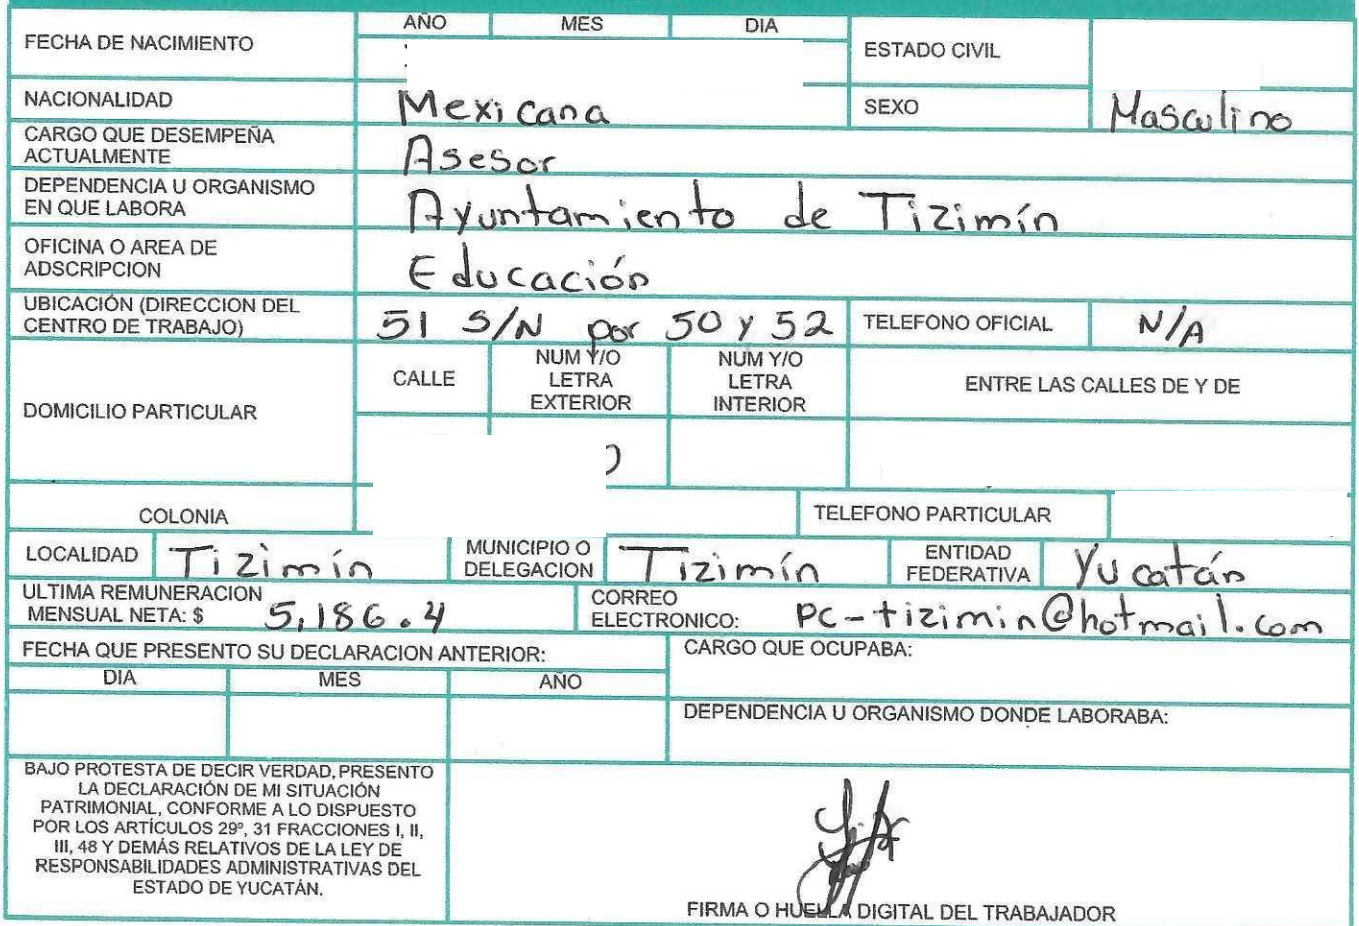 AÑO MES DIA
FECHA DE NACIMIENTO ESTADO CIVIL
NACIONALIDAD Mexicana SEXO Masculino
CARGO QUE DESEMPEÑA
ACTUALMENTE Asesor
DEPENDENCIA U ORGANISMO
EN QUE LABORA Ayuntamiento de Tizimín
OFICINA O AREA DE
ADSCRIPCION Educación
UBICACIÓN (DIRECCION DEL
CENTRO DE TRABAJO) 51 S/N por 50 y 52 TELEFONO OFICIAL N/A
DOMICILIO PARTICULAR
CALLE
NUM Y/O
LETRA
EXTERIOR
NUM Y/O
LETRA
INTERIOR
ENTRE LAS CALLES DE Y DE
COLONIA TELEFONO PARTICULAR
LOCALIDAD Tizimín
MUNICIPIO O
DELEGACION Tizimín
ENTIDAD
FEDERATIVA Yucatán
ULTIMA REMUNERACION
MENSUAL NETA: $ 5,186.4
CORREO
ELECTRONICO: pc-tizimin@hotmail.com
FECHA QUE PRESENTO SU DECLARACION ANTERIOR: CARGO QUE OCUPABA:
DIA MES AÑO
DEPENDENCIA U ORGANISMO DONDE LABORABA:
BAJO PROTESTA DE DECIR VERDAD, PRESENTO
LA DECLARACIÓN DE MI SITUACIÓN
PATRIMONIAL, CONFORME A LO DISPUESTO
POR LOS ARTÍCULOS 29º, 31 FRACCIONES I, II,
III, 48 Y DEMÁS RELATIVOS DE LA LEY DE
RESPONSABILIDADES ADMINISTRATIVAS DEL
ESTADO DE YUCATÁN.
FIRMA O HUELLA DIGITAL DEL TRABAJADOR